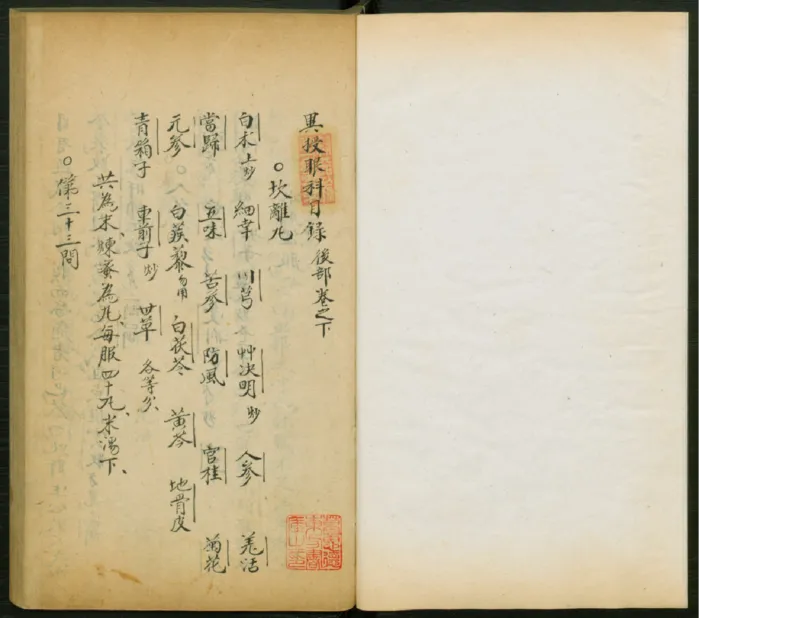 異授眼科目錄 後部卷之下
○坎離丸
白朮土炒 細辛 川芎 艸決明炒 人參 羌活
當歸 五味 苦參 防風 官桂 菊花
元參 白蒺藜 白茯苓 黃芩 地骨皮
青箱子 車前子炒 甘草 各等分
共為末、煉蜜為丸、每服四十丸、米湯下、
○第三十三問